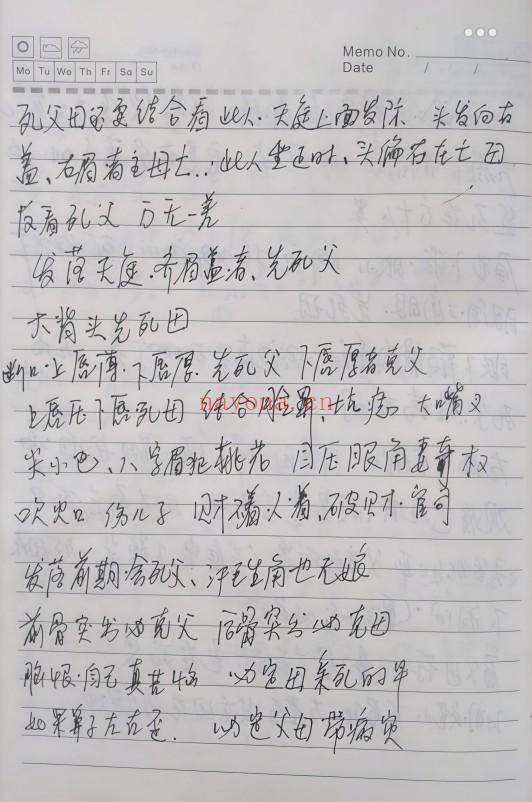 Memo No.
Date / /
Mo Tu We Th Fr Sa Su
死父母必要结合看 此人·天庭上面发际 头发向右
盖、右眉者主母亡..此人坐这时、头偏右在亡母
反看死父 万无一差
发落天庭·齐眉盖者、先死父
大背头先死母
断口·上唇薄·下唇厚·先死父 下唇厚者克父
上唇压下唇死母 结合脸罩、坑病 大嘴义
尖小包、八字眉犯桃花 目压眼角妻夺权
吹火口 伤儿子 见才不着人着、破财·官司
发落前期舍死父、汗毛生角也无娘
前骨突出必克父 后骨突出必克母
胸 自己真苦恼 必定母亲死的早
如果鼻子左右歪. 必定父母带病灾
nayona.cn